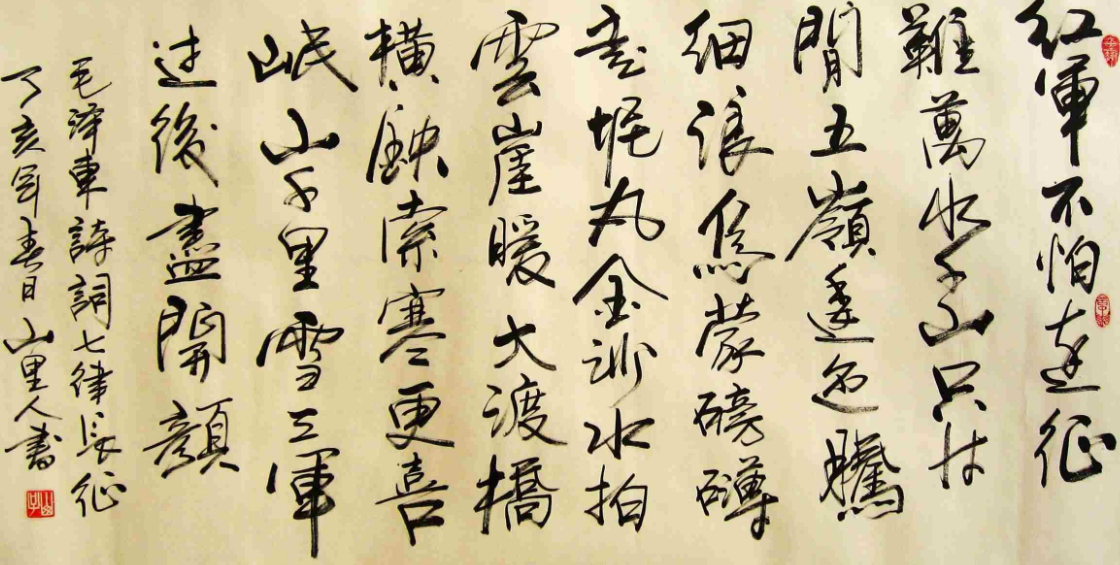 紅軍不怕遠征
難萬水千山只等
閒五嶺逶迤騰
細浪烏蒙磅礴
走坭丸金沙水拍
雲崖暖大渡橋
橫鉄索寒更喜
岷山千里雪三軍
过後盡開顏
毛泽東詩詞七律長征
丁亥年春日山里人書